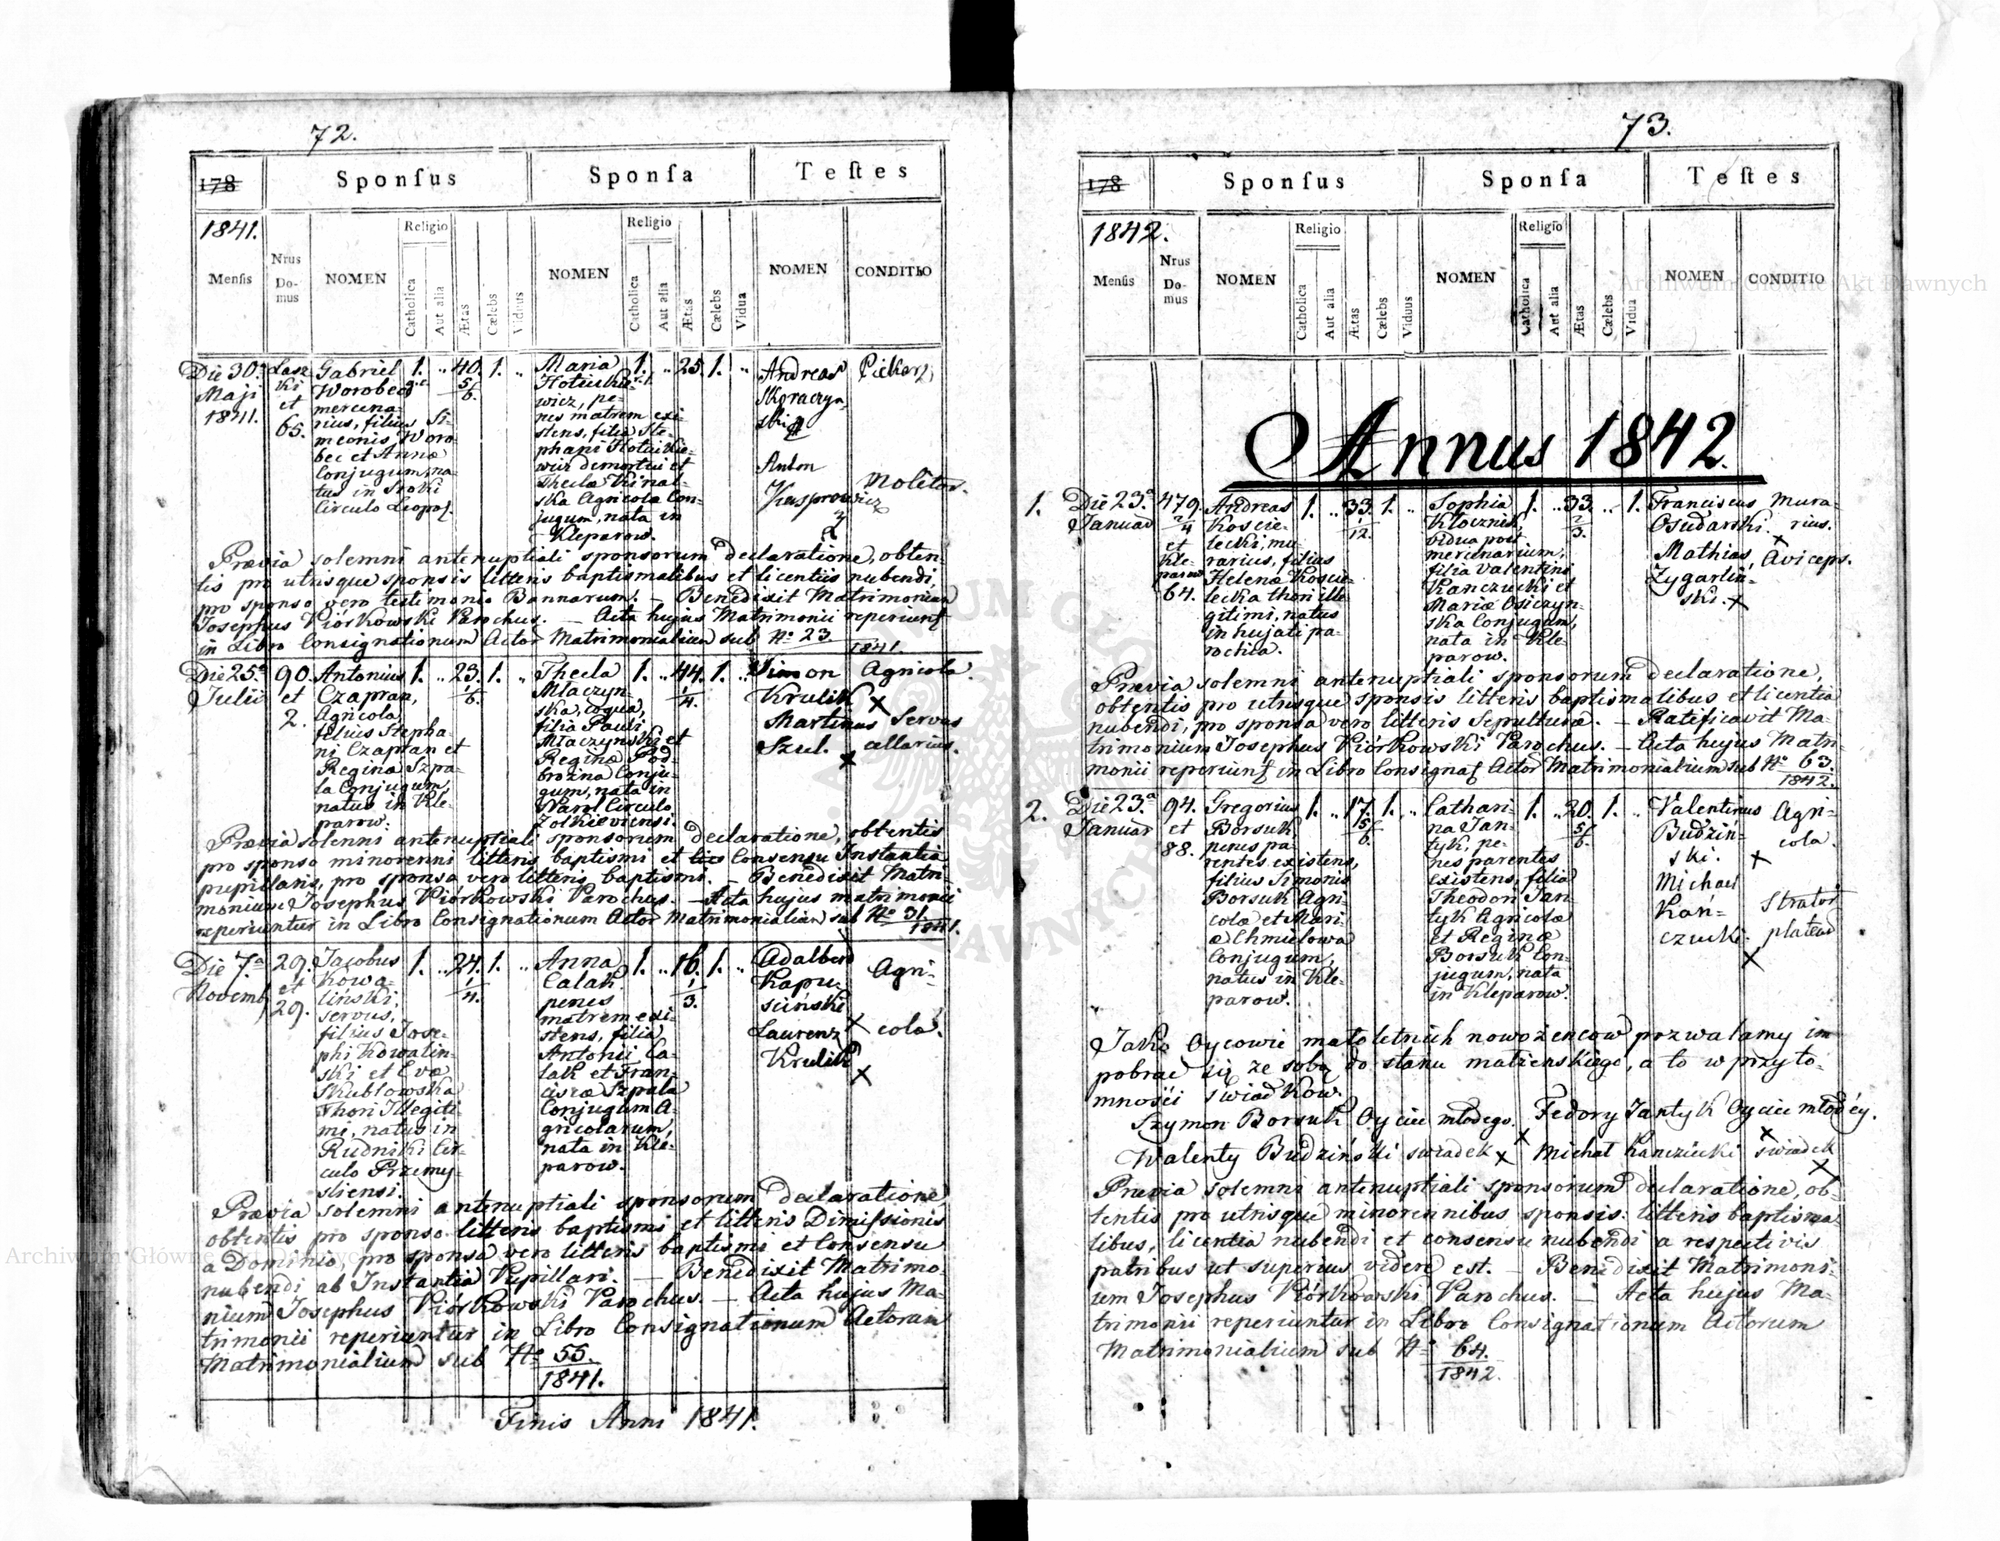 72.
178 Sponſus Sponſa Teſtes
1841. Religio Religio
Menſis Nrus Domus NOMEN Catholica Aut alia Ætas Cælebs Viduus NOMEN Catholica Aut alia Ætas Cælebs Vidua NOMEN CONDITIO
Die 30ª
Maji
1841.
et
65.
Gabriel
Worobec
mercena-
rius, filius Si-
meonis Woro
bec et Annæ
Conjugum, na-
tus in
Circulo Leopol.
1. .. 40. 1. ..
5/6.
Maria
wicz, pe-
nes matrem exi-
stens, filia Ste-
phani
demortui et
Theclæ
ska Agricolæ Con-
jugum, nata in
Kleparow.
1. .. 25. 1. ..
Andreas
Skoraczyń
ski
Anton
Kasprowicz
Piekarz
Molitor.
Prævia solemni antenuptiali sponsorum declaratione, obten-
tis pro utrisque sponsis litteris baptismalibus et licentiis nubendi,
pro sponso vero testimonio Bannorum. – Benedixit Matrimonium
Josephus Piórkowski Parochus. – Acta hujus Matrimonii reperiunt
in Libro Consignationum Actor Matrimonialium sub Nº 23
1841.
Die 25ª
Julii
90.
et
2.
Antonius
Czapran,
Agricola,
filius Stepha-
ni Czapran et
Reginæ Szpa-
la Conjugum,
natus in Kle-
parow.
1. .. 23. 1. ..
1/6.
Thecla
Młaczyn-
ska, coqua,
filia Pauli
Młaczynski et
Reginæ Pod-
brozna Conju-
gum, nata in
Circulo
Zołkieviensi.
1. .. 44. 1. ..
1/4.
Simon
Krulik x
Martinus
Szul. x
Agricola.
Servus
cellarius.
Prævia solemni antenuptiali sponsorum declaratione, obtentis
pro sponso minorenni litteris baptismi et Consensu Instantiæ
pupillaris, pro sponsa vero litteris baptismi. – Benedixit Matri
monium Josephus Piórkowski Parochus. – Acta hujus matrimonii
reperiuntur in Libro Consignationum Actor Matrimonialium sub Nº 31.
1841.
Die 7ª
Novemb
29.
et
29.
Jacobus
Kowa-
liński,
servus,
filius Jose-
phi Kowalin-
ski et Evæ
Skubłowska
Thori Illegiti-
mi, natus in
Rudniki Cir-
culo Przemy-
sliensi.
1. .. 24. 1. ..
1/4.
Anna
Calak
penes
matrem exi-
stens, filia
Antonii Ca-
lak et Fran-
ciscæ Szpala
Conjugum A-
gricolarum,
nata in Kle-
parow.
1. .. 16. 1. ..
1/3.
Adalbert
Kapu-
siński
x
Laurenz
Krulik
x
Agri-
cola.
Prævia solemni antenuptiali sponsorum declaratione,
obtentis pro sponso litteris baptismi et litteris Dimissionis
a Dominio, pro sponsa vero litteris baptismi et Consensu
nubendi ab Instantia Pupillari. – Benedixit Matrimo-
nium Josephus Piórkowski Parochus. – Acta hujus Ma-
trimonii reperiuntur in Libro Consignationum Actorum
Matrimonialium sub Nº 55.
1841.
Finis Anni 1841.
73.
178 Sponſus Sponſa Teſtes
1842. Religio Religio
Menſis Nrus Domus NOMEN Catholica Aut alia Ætas Cælebs Viduus NOMEN Catholica Aut alia Ætas Cælebs Vidua NOMEN CONDITIO
Annus 1842.
1. Die 23ª
Januar
479.
2/4
et
Kle-
parow
64.
Andreas
Koscie-
lecki, mu-
rarius, filius
Helenæ Koscie-
lecka thori ille-
gitimi, natus
in hujati pa-
rochia.
1. .. 33. 1. ..
1/12.
Sophia
Klocznik,
vidua post
mercenarium,
filia Valentini
Kanczucki et
Mariæ Osiczyn-
ska Conjugum,
nata in Kle-
parow.
1. .. 33. .. 1.
2/3.
Franciscus
Osudarski. x
Mathias
Zygarliń-
ski. x
Mura-
rius.
Aviceps.
Prævia solemni antenuptiali sponsorum declaratione,
obtentis pro utrisque sponsis litteris baptismalibus et licentia
nubendi, pro sponsa vero litteris Sepulturæ. – Ratificavit Ma-
trimonium Josephus Piórkowski Parochus. – Acta hujus Matri-
monii reperiunt in Libro Consignat Actor Matrimonialium sub Nº 63.
1842.
2. Die 23ª
Januar
94.
et
88.
Gregorius
Borsuk
penes pa-
rentes existens,
filius Simonis
Borsuk Agri-
colæ et Mari-
æ Chmielowa
Conjugum,
natus in Kle-
parow.
1. .. 17. 1. ..
5/6.
Cathari-
na Jan-
tyk, pe-
nes parentes
existens, filia
Theodori Jan-
tyk Agricolæ
et Reginæ
Borsuk Con-
jugum, nata
in Kleparow.
1. .. 20. 1. ..
5/6.
Valentinus
Budzin-
ski. x
Michael
Kań-
czucki.
x
Agri-
cola.
Strator
platearum
Jako Oycowie małoletnich nowożencow przwalamy im
pobrac się ze sobą do stanu małżenskiego, a to w przyto-
mności swiadkow.
Szymon Borsuk Oyciec młodego. x Fedory Jantyk Oyciec młodéy. x
Walenty Budziński swiadek x Michał Kanczucki swiadek x
Prævia solemni antenuptiali sponsorum declaratione, ob-
tentis pro utrisque minorennibus sponsis: litteris baptisma-
libus, licentia nubendi et consensu nubendi a respectivis
patribus ut superius videre est. – Benedixit Matrimoni-
um Josephus Piórkowski Parochus. – Acta hujus Ma-
trimonii reperiuntur in Libro Consignationum Actorum
Matrimonialium sub Nº 64.
1842.
Archiwum Główne Akt Dawnych
Archiwum Główne Akt Dawnych